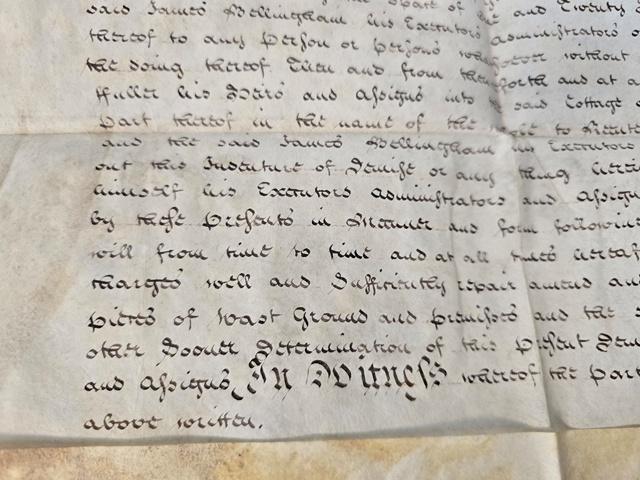 said James Bellingham his Executors Administrators o
thereof to any Person or Persons whatsoever without
the doing thereof Then and from thenceforth and at a
ffuller his Heirs and Assigns into the said Cottage
Part thereof in the name of the whole to Reenter
and the said James Bellingham his Executors
out this Indenture of Demise or any thing herei
himself his Executors Administrators and Assigns
by these Presents in Manner and form following
will from time to time and at all times hereaf
charges well and Sufficiently repair amend and
pieces of Wast Ground and premisses and the
other Sooner Determination of this Present Dem
and Assigns In Witness whereof the Part
above written.